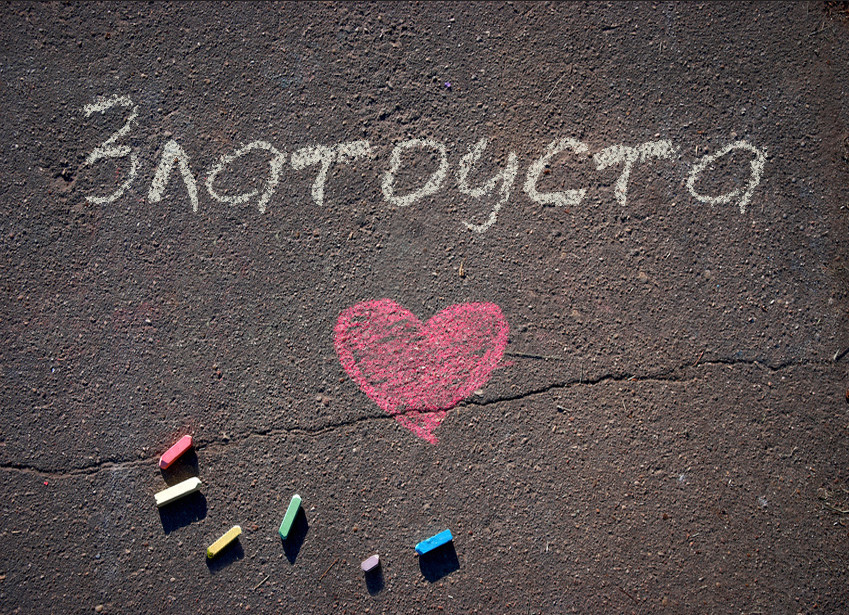 Златоуста